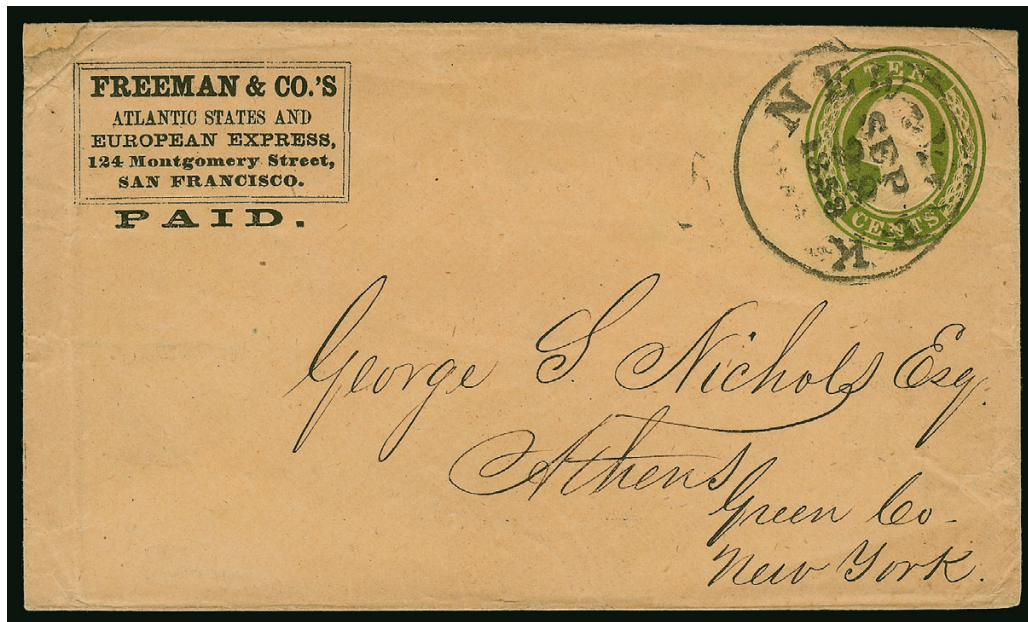 FREEMAN & CO.'S
ATLANTIC STATES AND
EUROPEAN EXPRESS,
124 Montgomery Street,
SAN FRANCISCO.
PAID.
TEN
CENTS
NEW YORK
SEP
1858
George S. Nichols Esq.
Athens
Green Co-
New York.